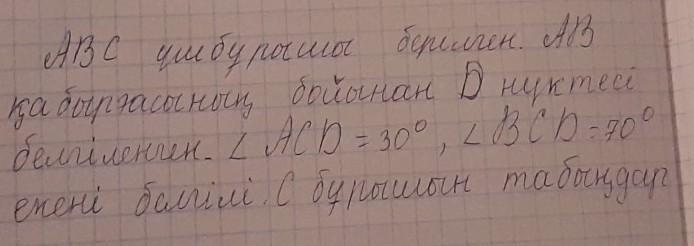 ABC үшбұрышы берилген. AB
қабырғасының бойынан D нүктесі
белгіленген. ∠ ACD = 30°, ∠ BCD = 70°
екені белгілі. C бұрышын табыңдар